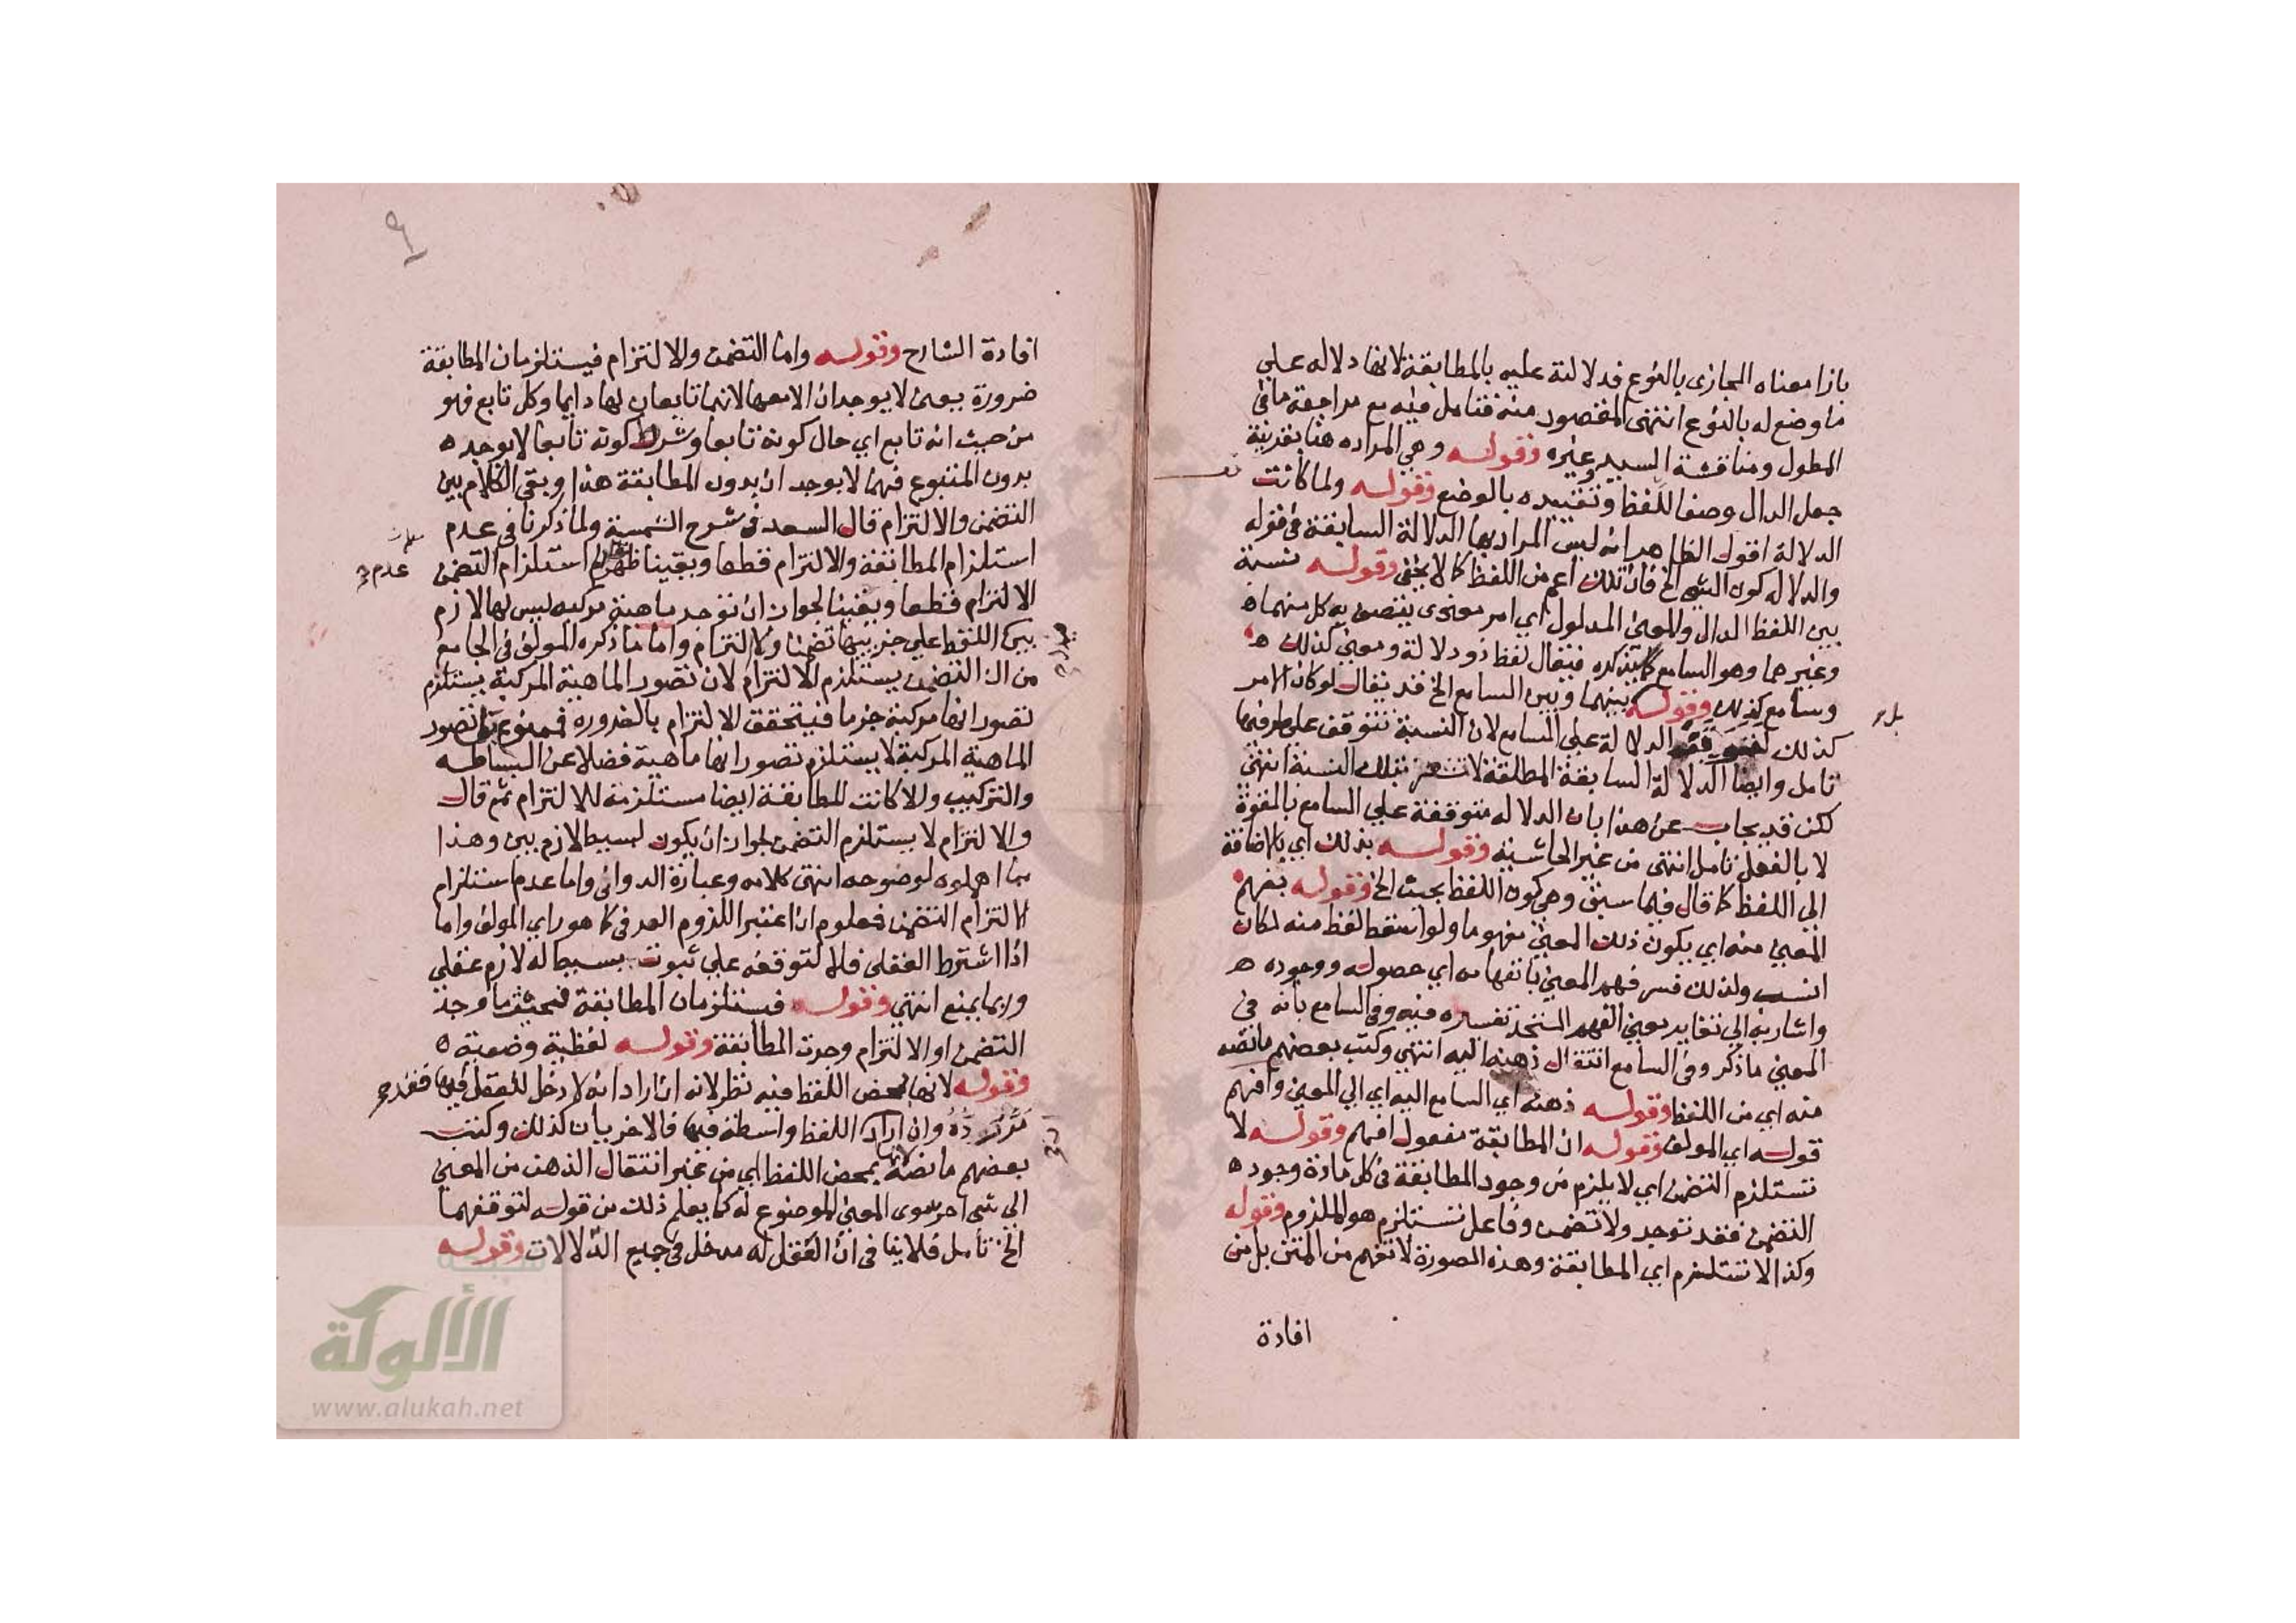 بازا معناه المجازى بالنوع فدلالته عليه بالمطابقة لانها دلاله على
ما وضع له بالنوع انتهى المقصود منه فتامل فيه مع مراجعة ما في
المطول ومناقشة السيد وغيره وقوله وهي المراده هنا بقرينة
جعل الدال وصفا للفظ وتقييده بالوضع وقوله ولما كانت
الدلالة اقول الظاهر انه ليس المراد بها الدلالة السابقة في قوله
والدلاله كون الشي الخ فان تلك اعم من اللفظ كما لا يخفى وقوله نسبة
بين اللفظ الدال والمعنى المدلول اي امر معنوى يتصف به كل منهما
وغيرهما وهو السامع كما يذكره فيقال لفظ ذو دلالة ومعنى كذلك
وسامع كذلك وقوله بينهما وبين السامع الخ قد يقال لو كان الامر
كذلك الدلالة على السامع لان النسبة تتوقف على طرفيها
تامل وايضا الدلالة السابقة المطلقة لا تشعر بتلك النسبة انتهى
لكن قد يجاب عن هذا بان الدلاله متوقفة على السامع بالقوة
لا بالفعل تامل انتهى من غير الحاشية وقوله بذلك اي بالاضافة
الى اللفظ كما قال فيما سبق وهي كون اللفظ بحيث الخ وقوله بفهم
المعنى منه اي بكون ذلك المعنى مفهوما ولو اسقط لفظ منه لكان
انسب ولذلك فسر فهم المعنى بانفهامه اي حصوله ووجوده
واشار به الى تغاير معنى الفهم المتحد تفسيره فيه وفي السامع بانه في
المعنى ما ذكر وفي السامع انتقال ذهنه اليه انتهى وكتب بعضهم ما نصه
منه اي من اللفظ وقوله ذهنه اي السامع اليه اي الى المعنى وافهم
قوله اي المولف وقوله ان المطابقة مفعول افهم وقوله لا
تستلزم التضمن اي لا يلزم من وجود المطابقة في كل مادة وجود
التضمن فقد توجد ولا تضمن وفاعل تستلزم هو الملزوم وقوله
وكذا لا تستلزم اي المطابقة وهذه الصورة لا تفهم من المتن بل من
افادة
افادة الشارح وقوله واما التضمن والالتزام فيستلزمان المطابقة
ضرورة بمعنى لا يوجدان الا معها لانهما تابعان لها دايما وكل تابع فهو
من حيث انه تابع اي حال كونه تابعا وشرط كونه تابعا لا يوجد
بدون المتبوع فهما لا يوجدان بدون المطابقة هذا وبقي الكلام بين
التضمن والالتزام قال السعد في شرح الشمسية ولما ذكرنا في عدم
استلزام المطابقة والالتزام قطعا ويقينا ظهر استلزام التضمن
عدم
الالتزام قطعا ويقينا لجواز ان توجد ماهية مركبه ليس لها لازم
بين اللفظ على جزئيها تضمنا ولا التزام واما ما ذكره المولف في الجامع
من ان التضمن يستلزم الالتزام لان تصور الماهية المركبة يستلزم
تصور انها مركبة جزما فيتحقق الالتزام بالضروره فممنوع تصور
الماهية المركبة لا يستلزم تصور انها ماهية فضلا عن البساطه
والتركيب والا كانت المطابقة ايضا مستلزمة للالتزام ثم قال
والالتزام لا يستلزم التضمن لجواز ان يكون لبسيط لازم بين وهذا
مما اهملوه لوضوحه انتهى كلامه وعبارة الدواني واما عدم استلزام
الالتزام التضمن فمعلوم ان اعتبر اللزوم العرفي كما هو راي المولف واما
اذا اشترط العقلى فلا لتوقفه على ثبوت بسيط له لازم عقلى
وربما يمنع انتهى وقوله فيستلزمان المطابقة فحيثما وجد
التضمن او الالتزام وجدت المطابقة وقوله لفظية وضعية
وقوله لانها بمحض اللفظ فيه نظر لانه ان اراد انه لا دخل للعقل فيها فقد مر
رده وان اراد اللفظ واسطة فيها فالاخريان كذلك وكتب
بعضهم ما نصه بمحض اللفظ اي من غير انتقال الذهن من المعنى
الى شي اخر سوى المعنى الموضوع له كما يعلم ذلك من قوله لتوقفهما
الخ تامل فلا ينافي ان العقل له مدخل في جميع الدلالات وقوله
شبكة
الألوكة
www.alukah.net